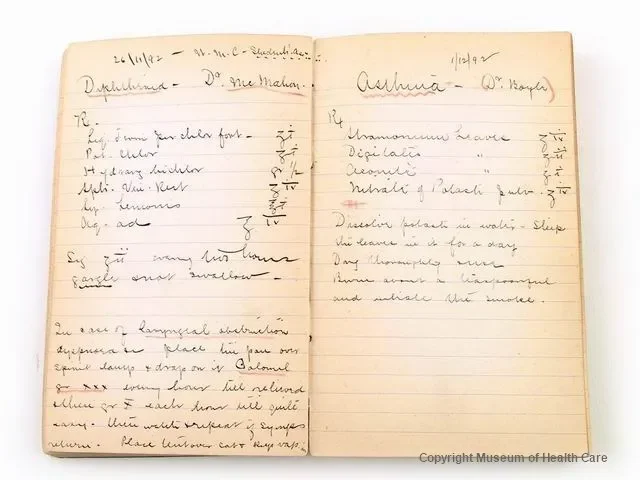 26/11/92 - W. M. C -
Diphtheria - Dr. McMahon.
R.
Liq. Ferri perchlor fort - ʒi
Pot. Chlor
Hydrarg bichlor gr 1/2
Spts. Vin. Rect
Syr. Limonis
Aq - ad
Sig ʒii every two hours
gargle and swallow -
In case of laryngeal obstruction
dyspnoea &c place tin pan over
spirit lamp & drop on it Calomel
gr xxx every hour till relieved
then gr X each hour till quite
easy. then watch & repeat if symps
return. Place tent over cot & keep vap. in
1/12/92
Asthma - (Dr Boyle)
Rx
Stramonium Leaves ʒiv
Digitalis " ʒii
Aconite " ʒii
Nitrate of Potash pulv. ʒiv
Dissolve potash in water - Steep
the leaves in it for a day
Dry thoroughly
Burn about a teaspoonful
and inhale the smoke.
Copyright Museum of Health Care